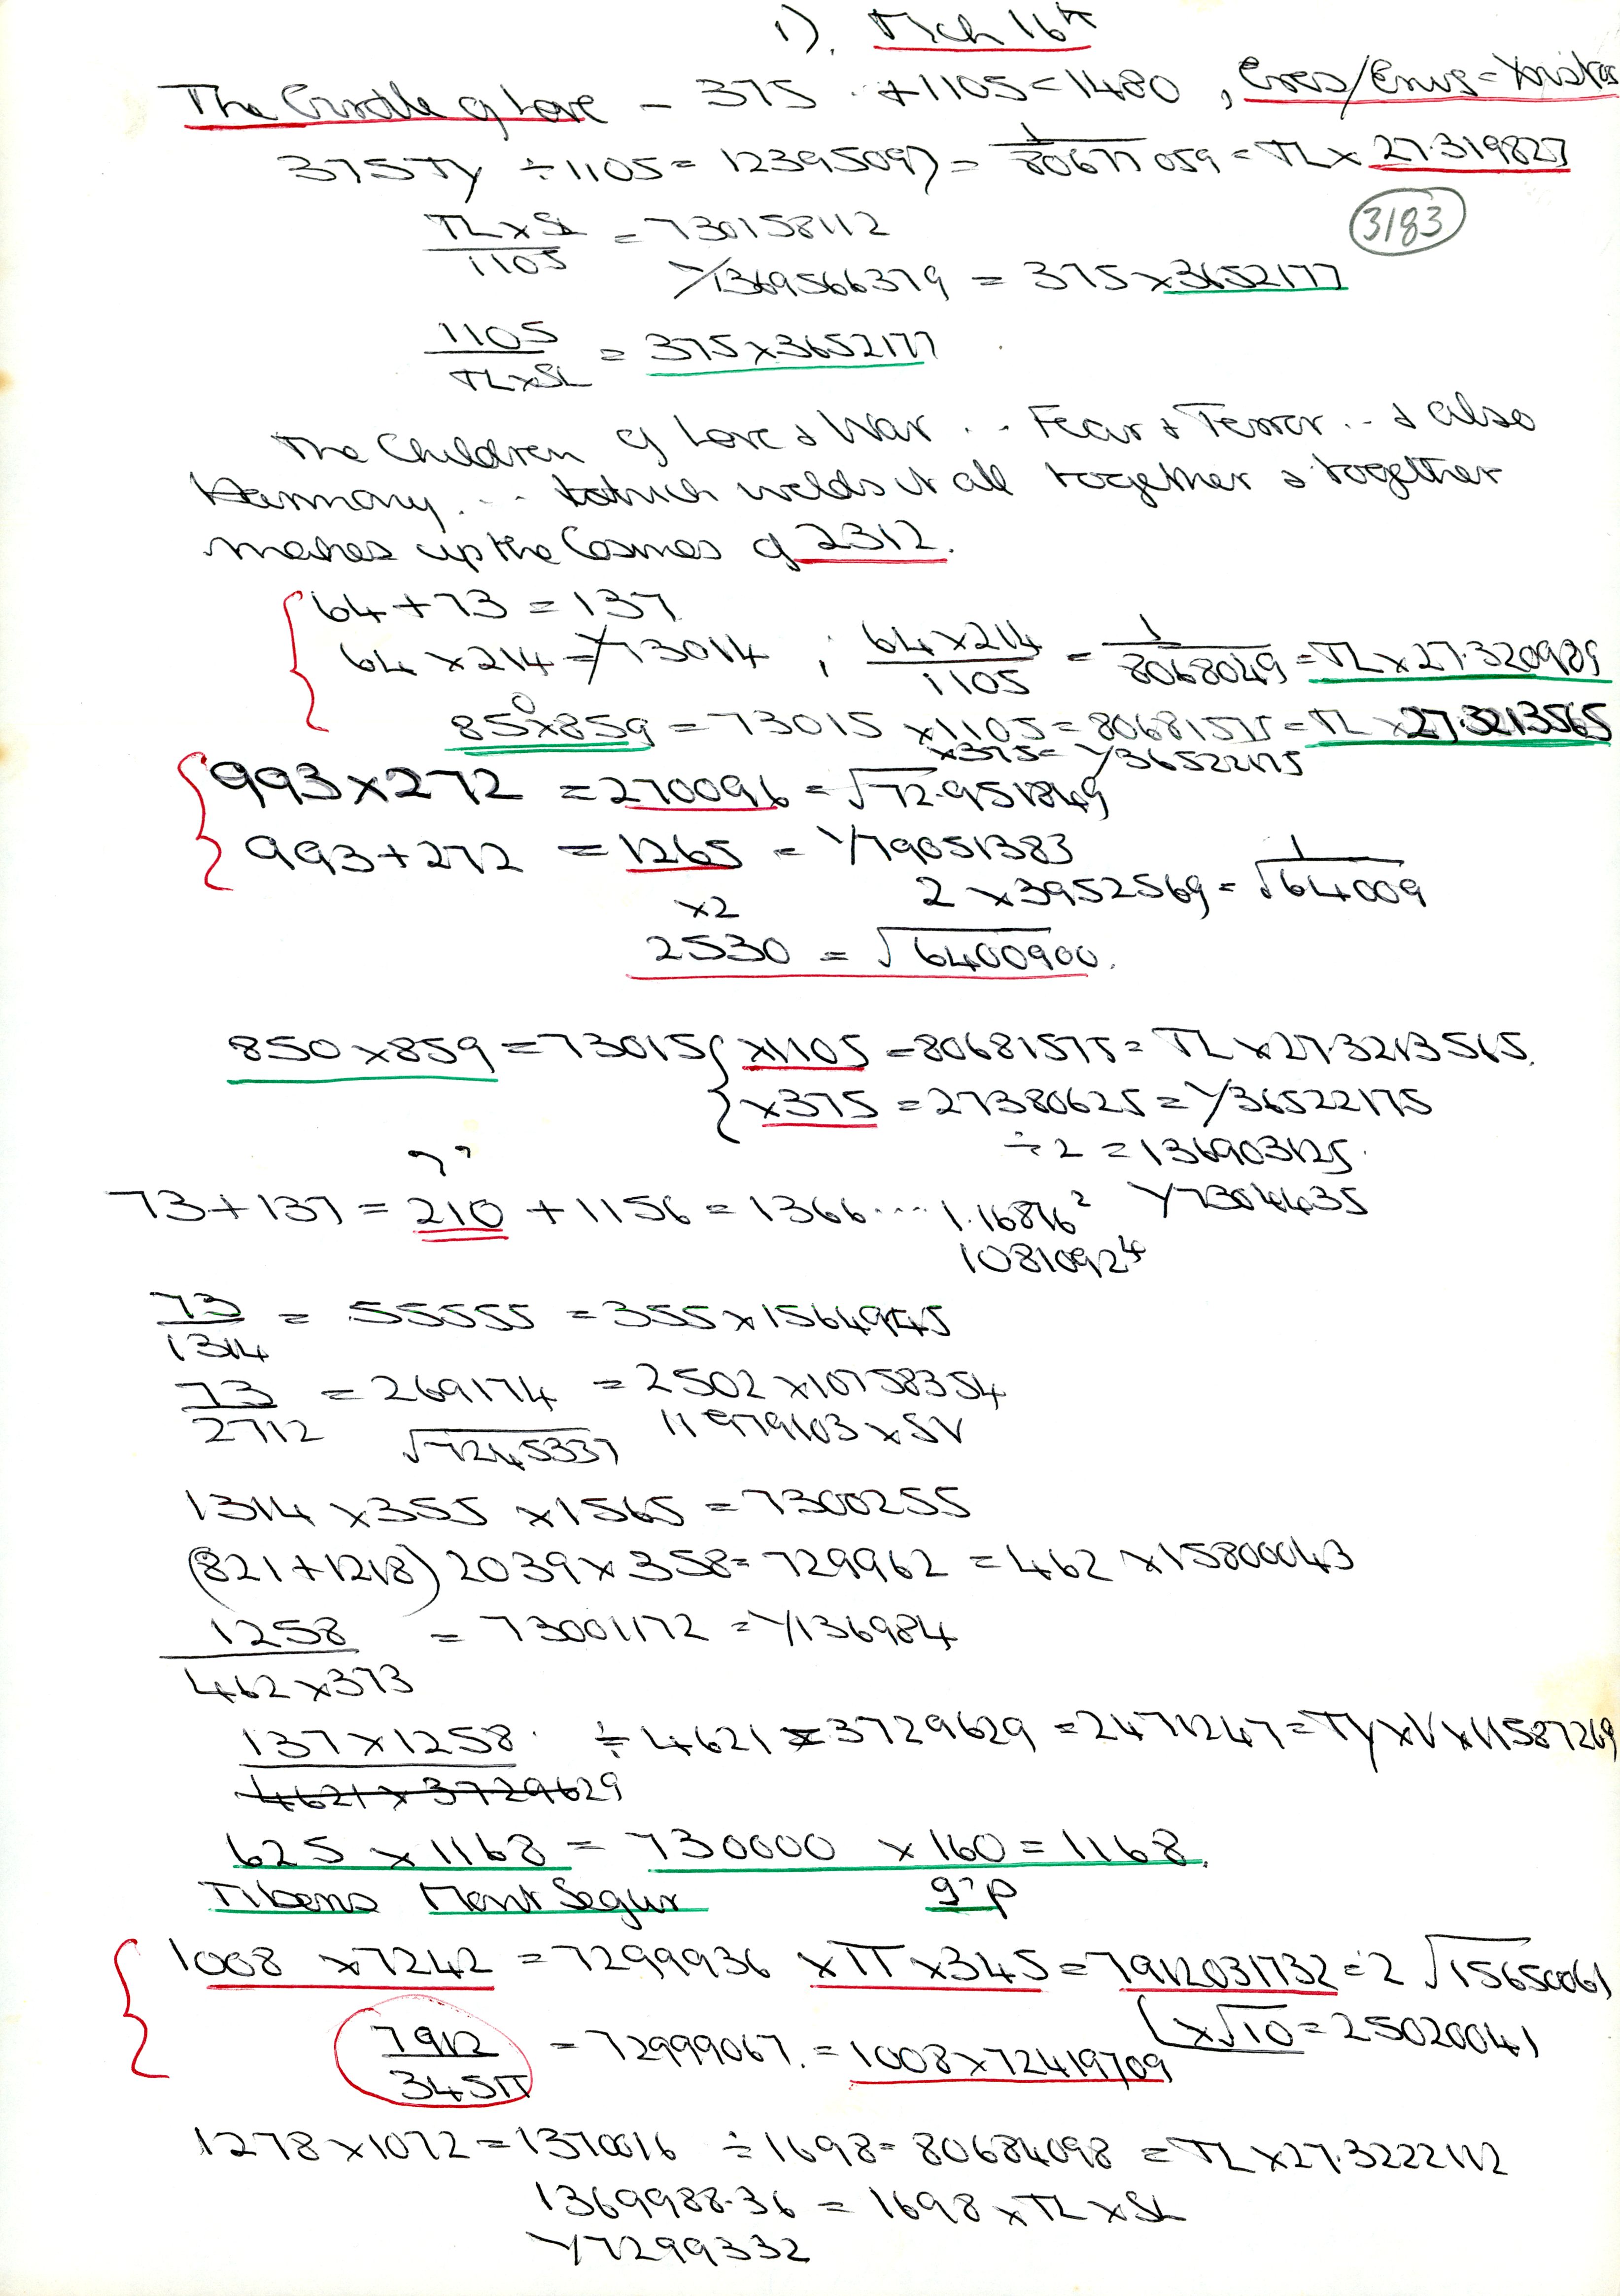 1). Mch 16th
The Girdle of Love – 375 + 1105 = 1480, Eros/Enus = Xristos
375Ty ÷ 1105 = 12395097) = 1/80677059 = TL x 27.319827
TL x SL / 1105 = 730158112
3183
Y/1369566379 = 375 x 3652177
1105 / TL x SL = 375 x 3652177
The Children of Love & War .. Fear & Terror .. & also
Harmony ... which welds it all together & together
makes up the Cosmos of 2312.
64 + 73 = 137
64 x 214 = Y73014 ; 64 x 214 / 1105 = 1/8068049 = TL x 27.320989
850 x 859 = 73015 x 1105 = 80681575 = TL x 27.3213565
x 375 = Y36522175
993 x 272 = 270096 = √72.951849
993 + 272 = 1265 = Y79051383
x2 2 x 3952569 = 1/√64009
2530 = √6400900.
850 x 859 = 73015 { x1105 = 80681575 = TL x 27.3213565.
{ x375 = 27380625 = Y36522175
÷ 2 = 136903125.
73 + 137 = 210 + 1156 = 1366 .... 1.16876² Y7304435
1081092⁴
73/1314 = 55555 = 355 x 15649145
73/2712 = 269174 = 2502 x 10758354
√7245337 11979103 x SV
1314 x 355 x 1565 = 7300255
(821 + 1218) 2039 x 358 = 729962 = 462 x 15800043
1258 / 462 x 373 = 73001172 = Y136984
137 x 1258 ÷ 4621 x 3729629 = 2471247 = Ty x V x 11587269
4621 x 3729629
625 x 1168 = 730000 x 160 = 1168.
Tibens Mont Segur g'p
1008 x 7242 = 7299936 x π x 345 = 7912031732 = 2√15650061
(x√10 = 25020041
7912 / 345π = 72999067. = 1008 x 72419709
1278 x 1072 = 1370016 ÷ 1698 = 80684098 = TL x 27.3222112
1369988.36 = 1698 x TL x SL
Y7299332